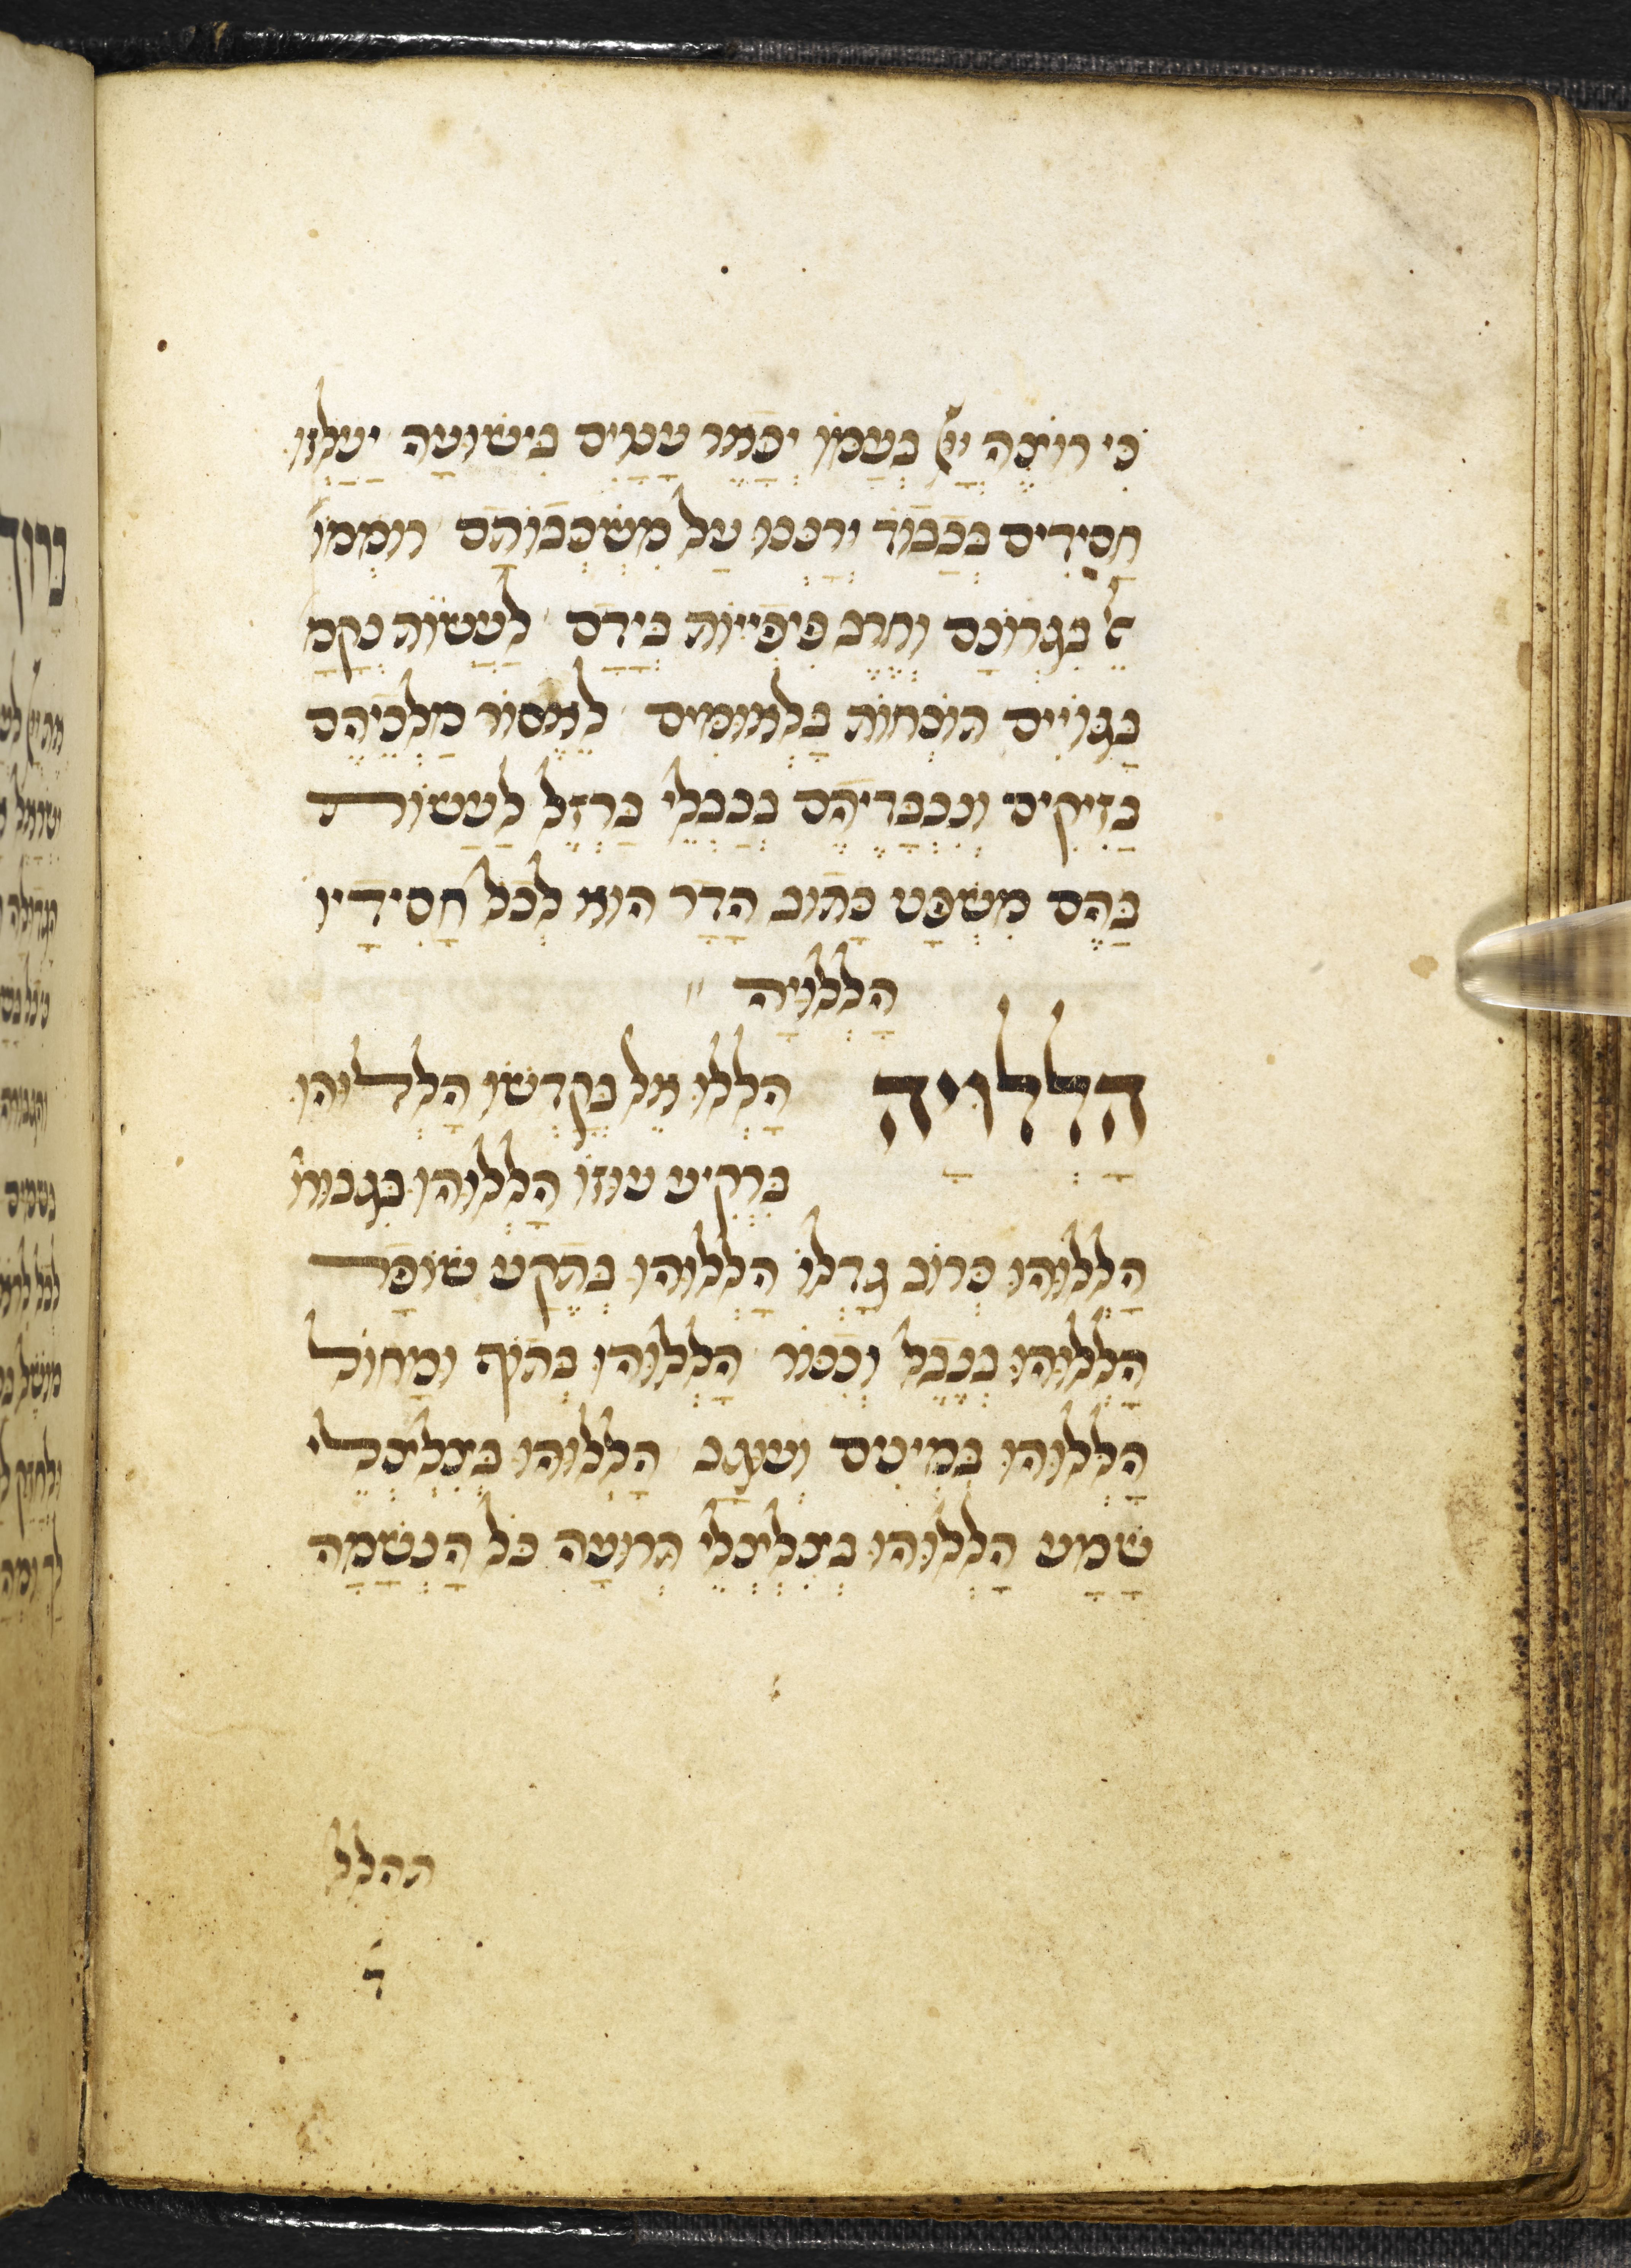 כִּי רוֹצֶה יְיָ בְּעַמּוֹ יְפָאֵר עֲנָוִים בִּישׁוּעָה יַעַלְזוּ
חֲסִידִים בְּכָבוֹד וִירַנְּנוּ עַל מִשְׁכְּבוֹתָם רוֹמְמוֹ
אֵל בִּגְרוֹנָם וְחֶרֶב פִּיפִיּוֹת בְּיָדָם לַעֲשׂוֹת נְקָמָ
בַּגּוֹיִים תּוֹכֵחוֹת בַּלְאוּמִּים לֶאְסוֹר מַלְכֵיהֶם
בְּזִיקִים וְנִכְבְּדֵיהֶם בְּכַבְלֵי בַרְזֶל לַעֲשׂוֹת
בָּהֶם מִשְׁפָּט כָּתוּב הָדָר הוּא לְכָל חֲסִידָיו
הַלְלוּיָהּ
הַלְלוּיָהּ הַלְלוּ אֵל בְּקָדְשׁוֹ הַלְלוּהוּ
בִּרְקִיעַ עוּזּוֹ הַלְלוּהוּ בִּגְבוּרֹ
הַלְלוּהוּ כְּרוֹב גֻּדְלוֹ הַלְלוּהוּ בְּתֵקַע שׁוֹפָר
הַלְלוּהוּ בְּנֵבֶל וְכִנּוֹר הַלְלוּהוּ בְּתוֹף וּמָחוֹל
הַלְלוּהוּ בְּמִינִים וְעֻגָב הַלְלוּהוּ בְּצִלְצְלֵי
שָׁמַע הַלְלוּהוּ בְּצִלְצְלֵי תְרוּעָה כֹּל הַנְּשָׁמָה
תהלל
ד